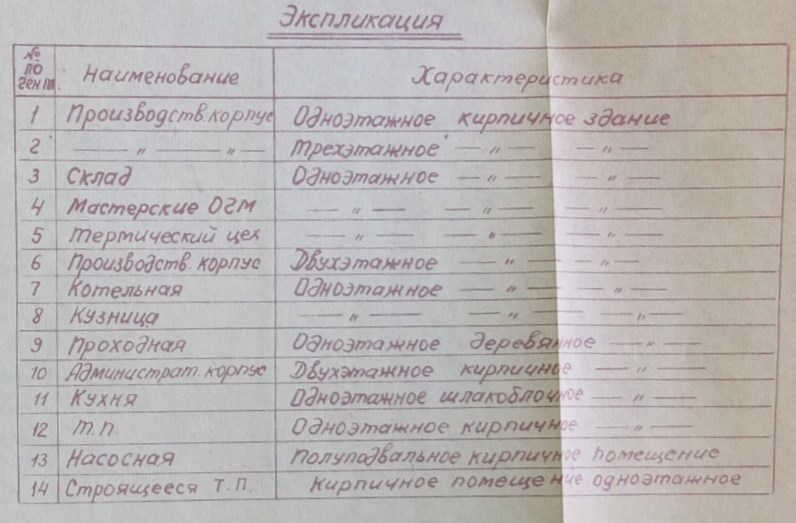 Экспликация
№ по ген пл. Наименование Характеристика
1 Производств. корпус Одноэтажное кирпичное здание
2 — „ — — „ — Трехэтажное — „ — — „ —
3 Склад Одноэтажное — „ — — „ —
4 Мастерские ОГМ — „ — — „ — — „ —
5 Термический цех — „ — — „ — — „ —
6 Производств. корпус Двухэтажное — „ — — „ —
7 Котельная Одноэтажное — „ — — „ —
8 Кузница — „ — — „ — — „ —
9 Проходная Одноэтажное деревянное — „ —
10 Администрат. корпус Двухэтажное кирпичное — „ —
11 Кухня Одноэтажное шлакоблочное — „ —
12 Т.П. Одноэтажное кирпичное — „ —
13 Насосная Полуподвальное кирпичное помещение
14 Строящееся Т.П. Кирпичное помещение одноэтажное